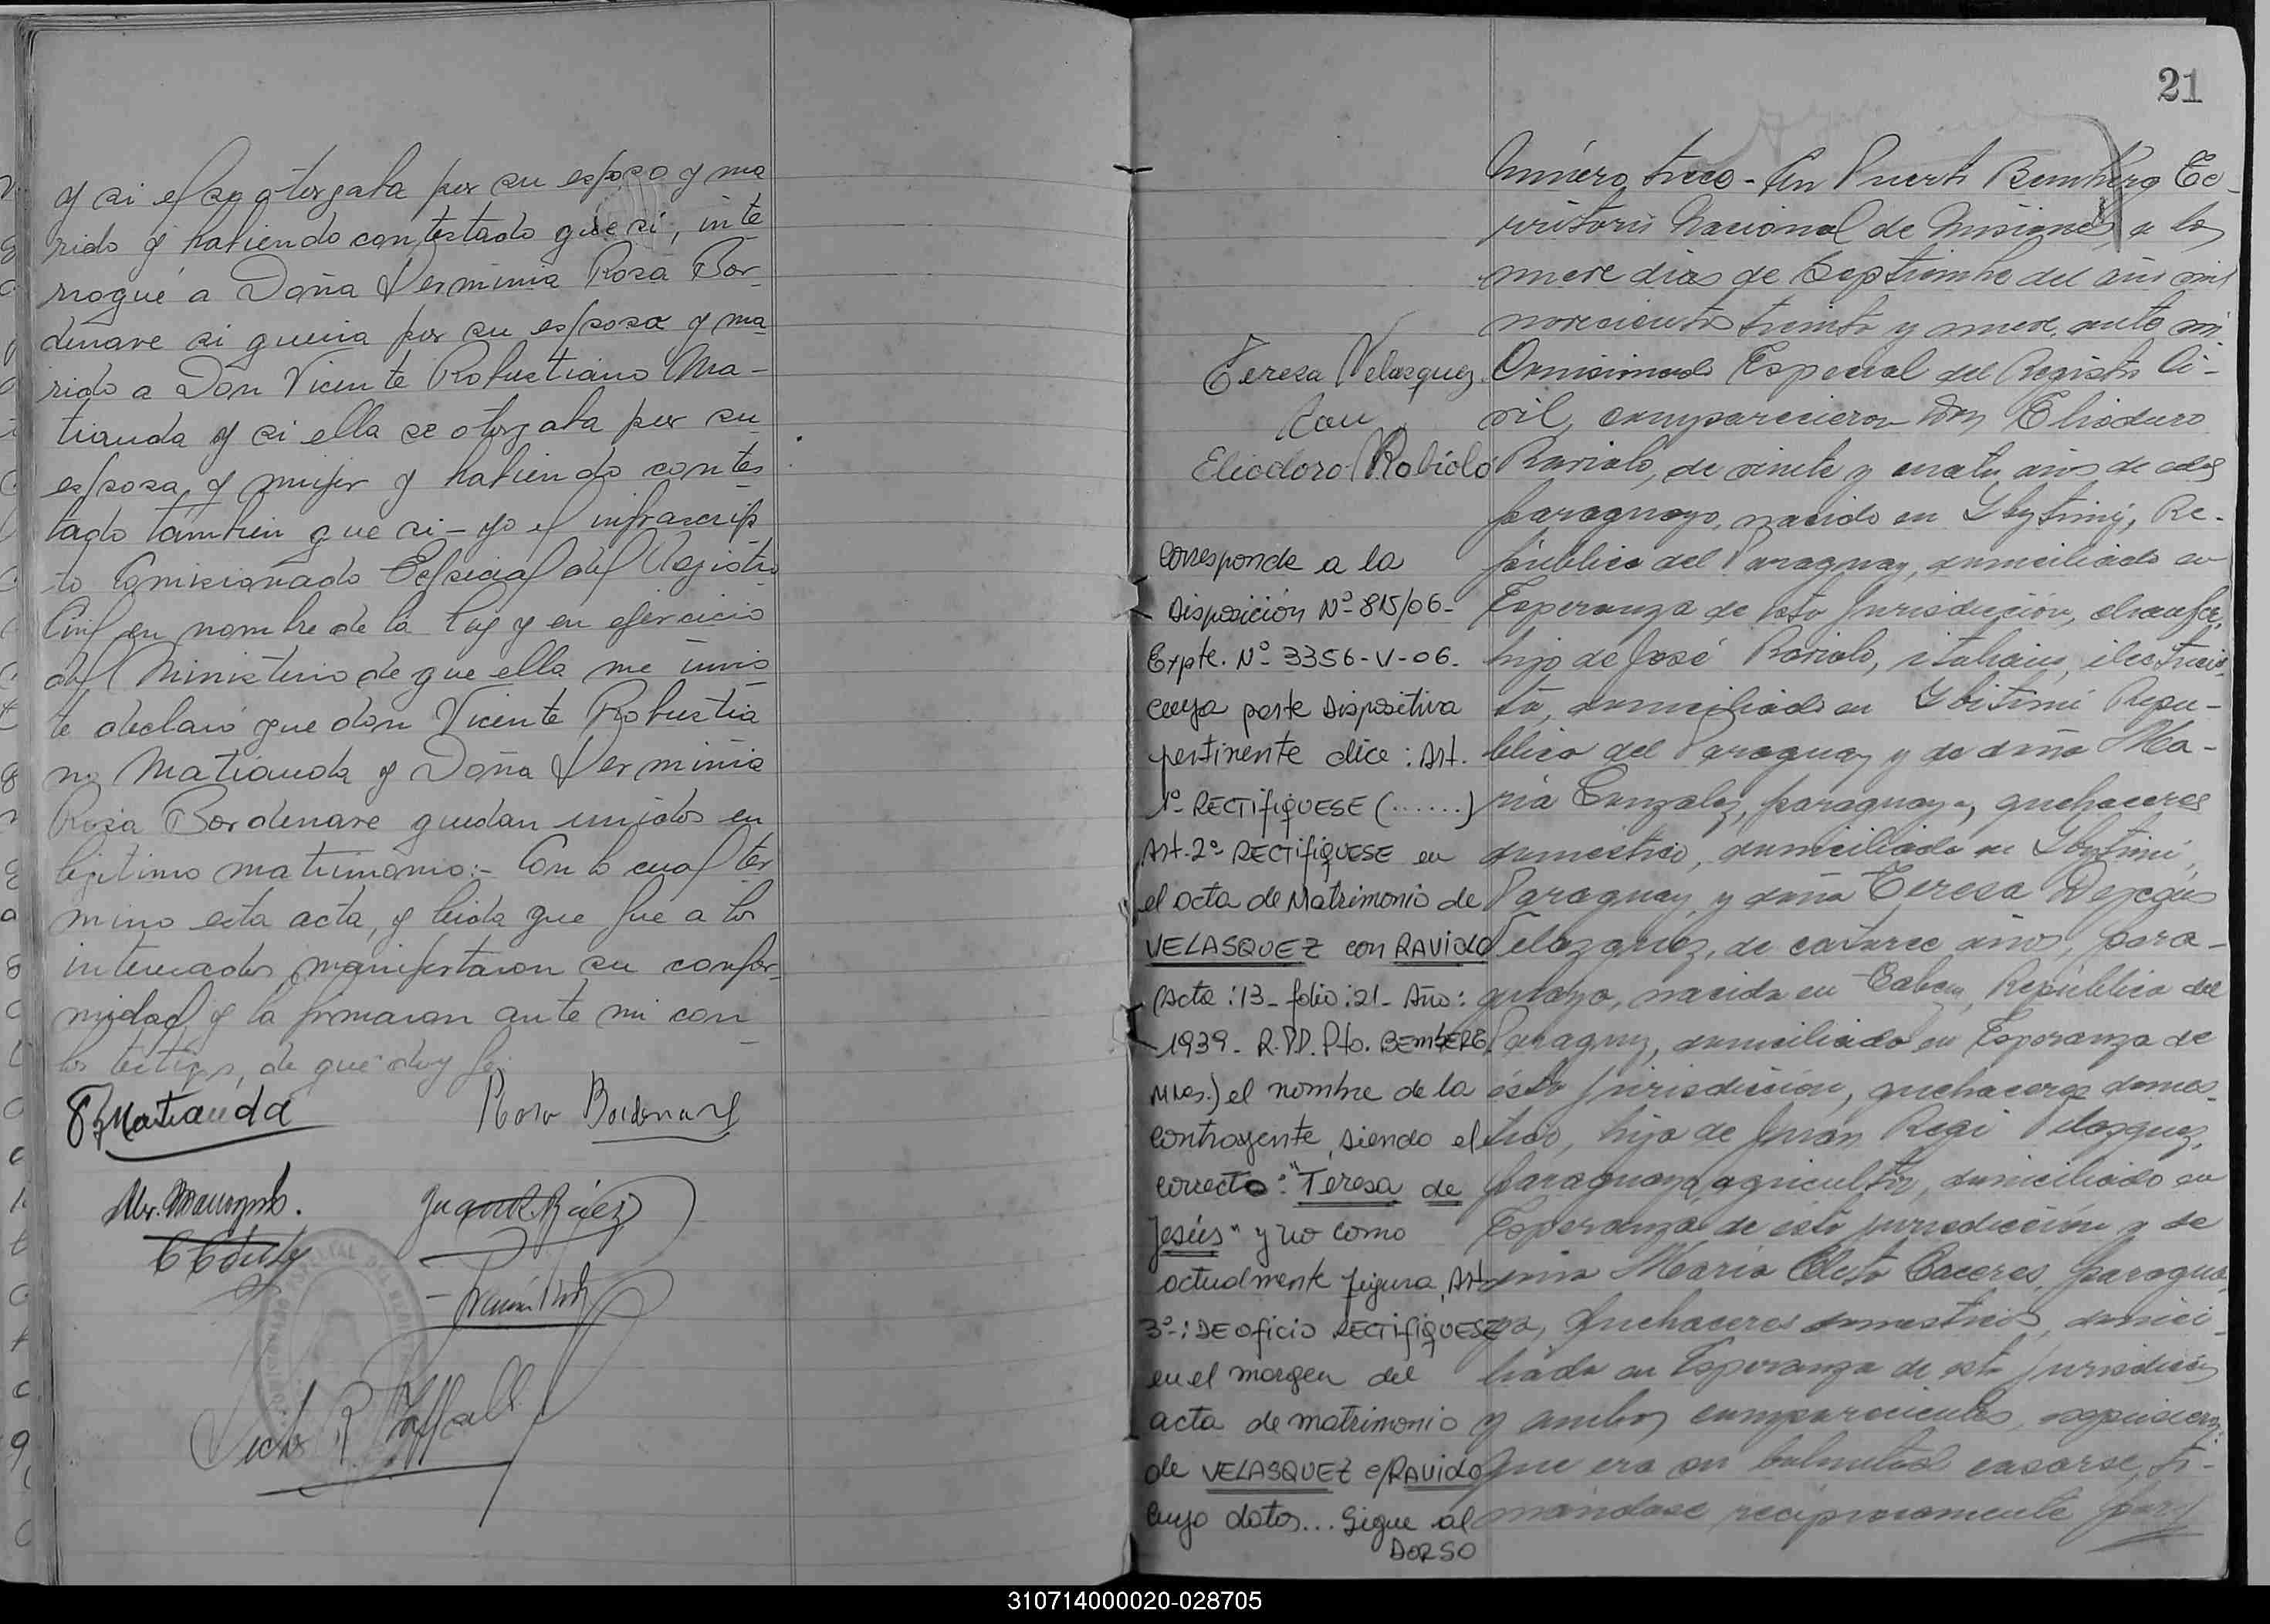 y si el se otorgaba por su esposo y ma
rido y habiendo contestado que si, inte
rrogué a Doña Herminia Rosa Bor
denave si queria por su esposo y ma
rido a Don Vicente Robustiano Ma-
tiauda y si ella se otorgaba por su
esposa y mujer y habiendo contes
tado también que si - yo el infrascrip
to Comisionado Especial del Registro
Civil en nombre de la Ley y en ejercicio
del Ministerio de que ella me invis
te declaro que don Vicente Robustia
no Matiauda y Doña Herminia
Rosa Bordenave quedan unidos en
legitimo matrimonio:- Con lo cual ter
mino esta acta, y leida que fue a los
interesados manifestaron su confor
midad y la firmaron ante mi con
los testigos, de que doy fe.
Matiauda
Rosa Bordenave
21
Teresa Velasquez
con
Eliodoro Robiolo
Corresponde a la
Disposición Nº 815/06-
Expte. Nº 3356-V-06-
cuya parte Dispositiva
pertinente dice: Art.
1º RECTIFIQUESE (......)
Art. 2º RECTIFIQUESE en
el acta de Matrimonio de
VELASQUEZ con RAVIOLO
(Acta: 13- folio: 21- Año:
1939- R.PP. Pto. BEMBERG
Mnes.) el nombre de la
contrayente, siendo el
correcto: "Teresa de
Jesús" y no como
actualmente figura, Art
3º-: DE oficio RECTIFIQUESE
en el margen del
acta de matrimonio
de VELASQUEZ c/RAVIOLO
cuyo datos... Sigue al
DORSO
Número trece - En Puerto Bemberg Te-
rritorio Nacional de Misiones, a los
nueve dias de Septiembre del año mil
novecientos treinta y nueve, ante mi
Comisionado Especial del Registro Ci-
vil, comparecieron Don Eliodoro
Raviolo, de veinte y cuatro años de edad
paraguayo, nacido en Ybytimi, Re-
pública del Paraguay, domiciliado en
Esperanza de esta Jurisdicción, chaufer,
hijo de José Raviolo, italiano, electricis-
ta, domiciliado en Ybitimi Repu-
blica del Paraguay y de doña Ma-
ria Gonzalez, paraguaya, quehaceres
domestico, domiciliada en Ybytimi,
Paraguay, y doña Teresa Dejesús
Velazquez, de catorce años, para-
guaya, nacida en República del
Paraguay, domiciliada en Esperanza de
ésta Jurisdicción, quehaceres domes-
tico, hija de Juan Regi Velazquez,
paraguayo, agricultor, domiciliado en
Esperanza de ésta jurisdicción y de
doña Maria Cleta Caceres, paragua
ya, quehaceres domesticos, domici-
liada en Esperanza de esta Jurisdicción
y ambos comparecientes expusieron:
que era su voluntad casarse, to-
mándose reciprocamente por
310714000020-028705